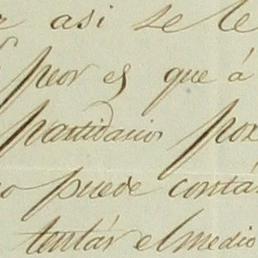 asi se le
peor es que á
partidario por
puede contár
tentár el medio